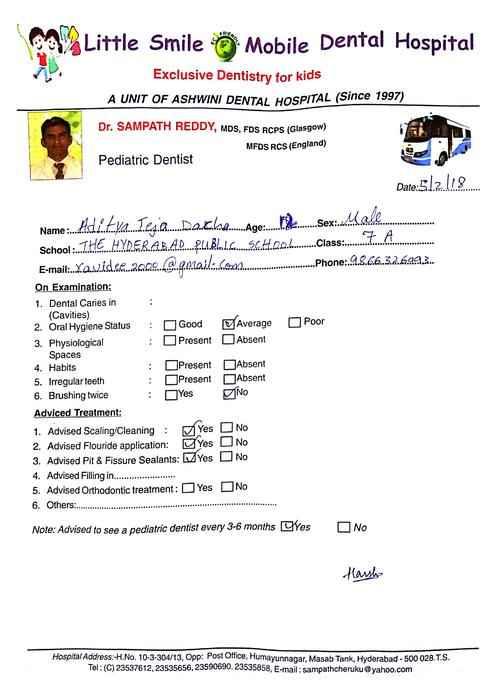 Little Smile Mobile Dental Hospital
Exclusive Dentistry for kids
A UNIT OF ASHWINI DENTAL HOSPITAL (Since 1997)
Dr. SAMPATH REDDY, MDS, FDS RCPS (Glasgow)
MFDS RCS (England)
Pediatric Dentist
Date: 5/2/18
Name: Aditya Teja Dakha Age: 12 Sex: Male
School: THE HYDERABAD PUBLIC SCHOOL Class: 7 A
E-mail: ravidee2000@gmail.com Phone: 9866326993
On Examination:
1. Dental Caries in :
(Cavities)
2. Oral Hygiene Status : Good Average Poor
3. Physiological : Present Absent
Spaces
4. Habits : Present Absent
5. Irregular teeth : Present Absent
6. Brushing twice : Yes No
Adviced Treatment:
1. Advised Scaling/Cleaning : Yes No
2. Advised Flouride application: Yes No
3. Advised Pit & Fissure Sealants: Yes No
4. Advised Filling in....................
5. Advised Orthodontic treatment : Yes No
6. Others:..............................................................
Note: Advised to see a pediatric dentist every 3-6 months Yes No
Harsh
Hospital Address:-H.No. 10-3-304/13, Opp: Post Office, Humayunnagar, Masab Tank, Hyderabad - 500 028.T.S.
Tel : (C) 23537612, 23535656, 23590690, 23535858, E-mail : sampathcheruku@yahoo.com